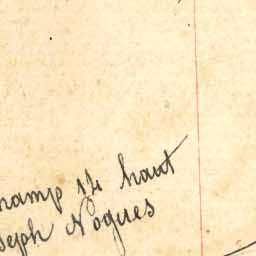 hamp sis haut
seph Nogues